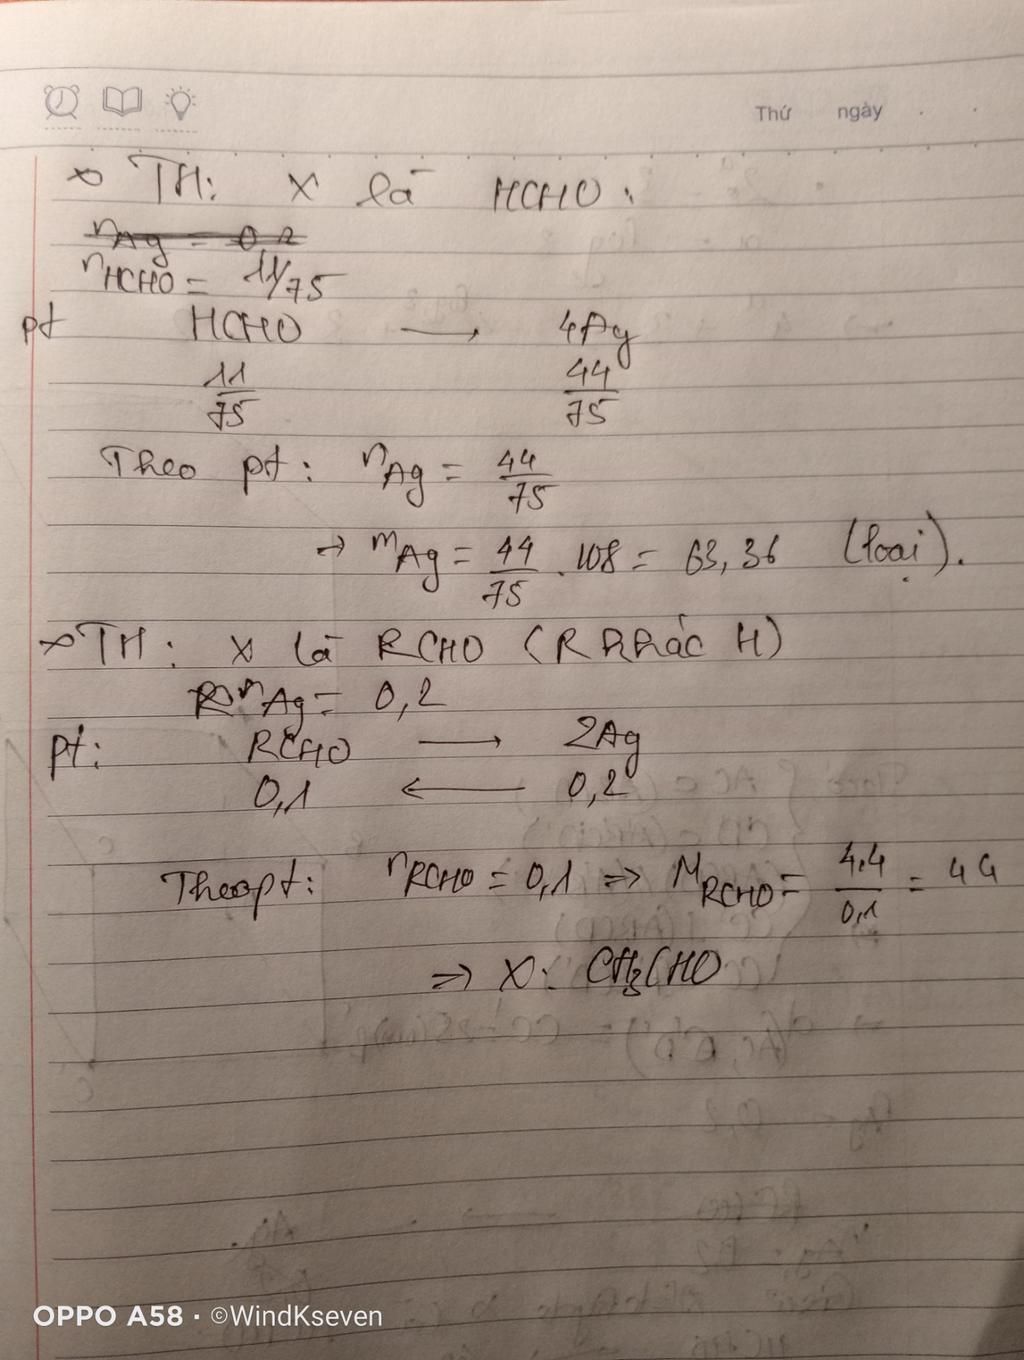 Thứ ngày
TH: X là HCHO:
nAg = 0,2
nHCHO = 11/75
pt HCHO → 4Ag
11/75 44/75
Theo pt: nAg = 44/75
→ mAg = 44/75 . 108 = 63,36 (loại).
TH: X là RCHO (R khác H)
nAg = 0,2
pt: RCHO → 2Ag
0,1 ← 0,2
Theo pt: nRCHO = 0,1 => MRCHO = 4,4/0,1 = 44
=> X: CH3CHO
OPPO A58 · ©WindKseven